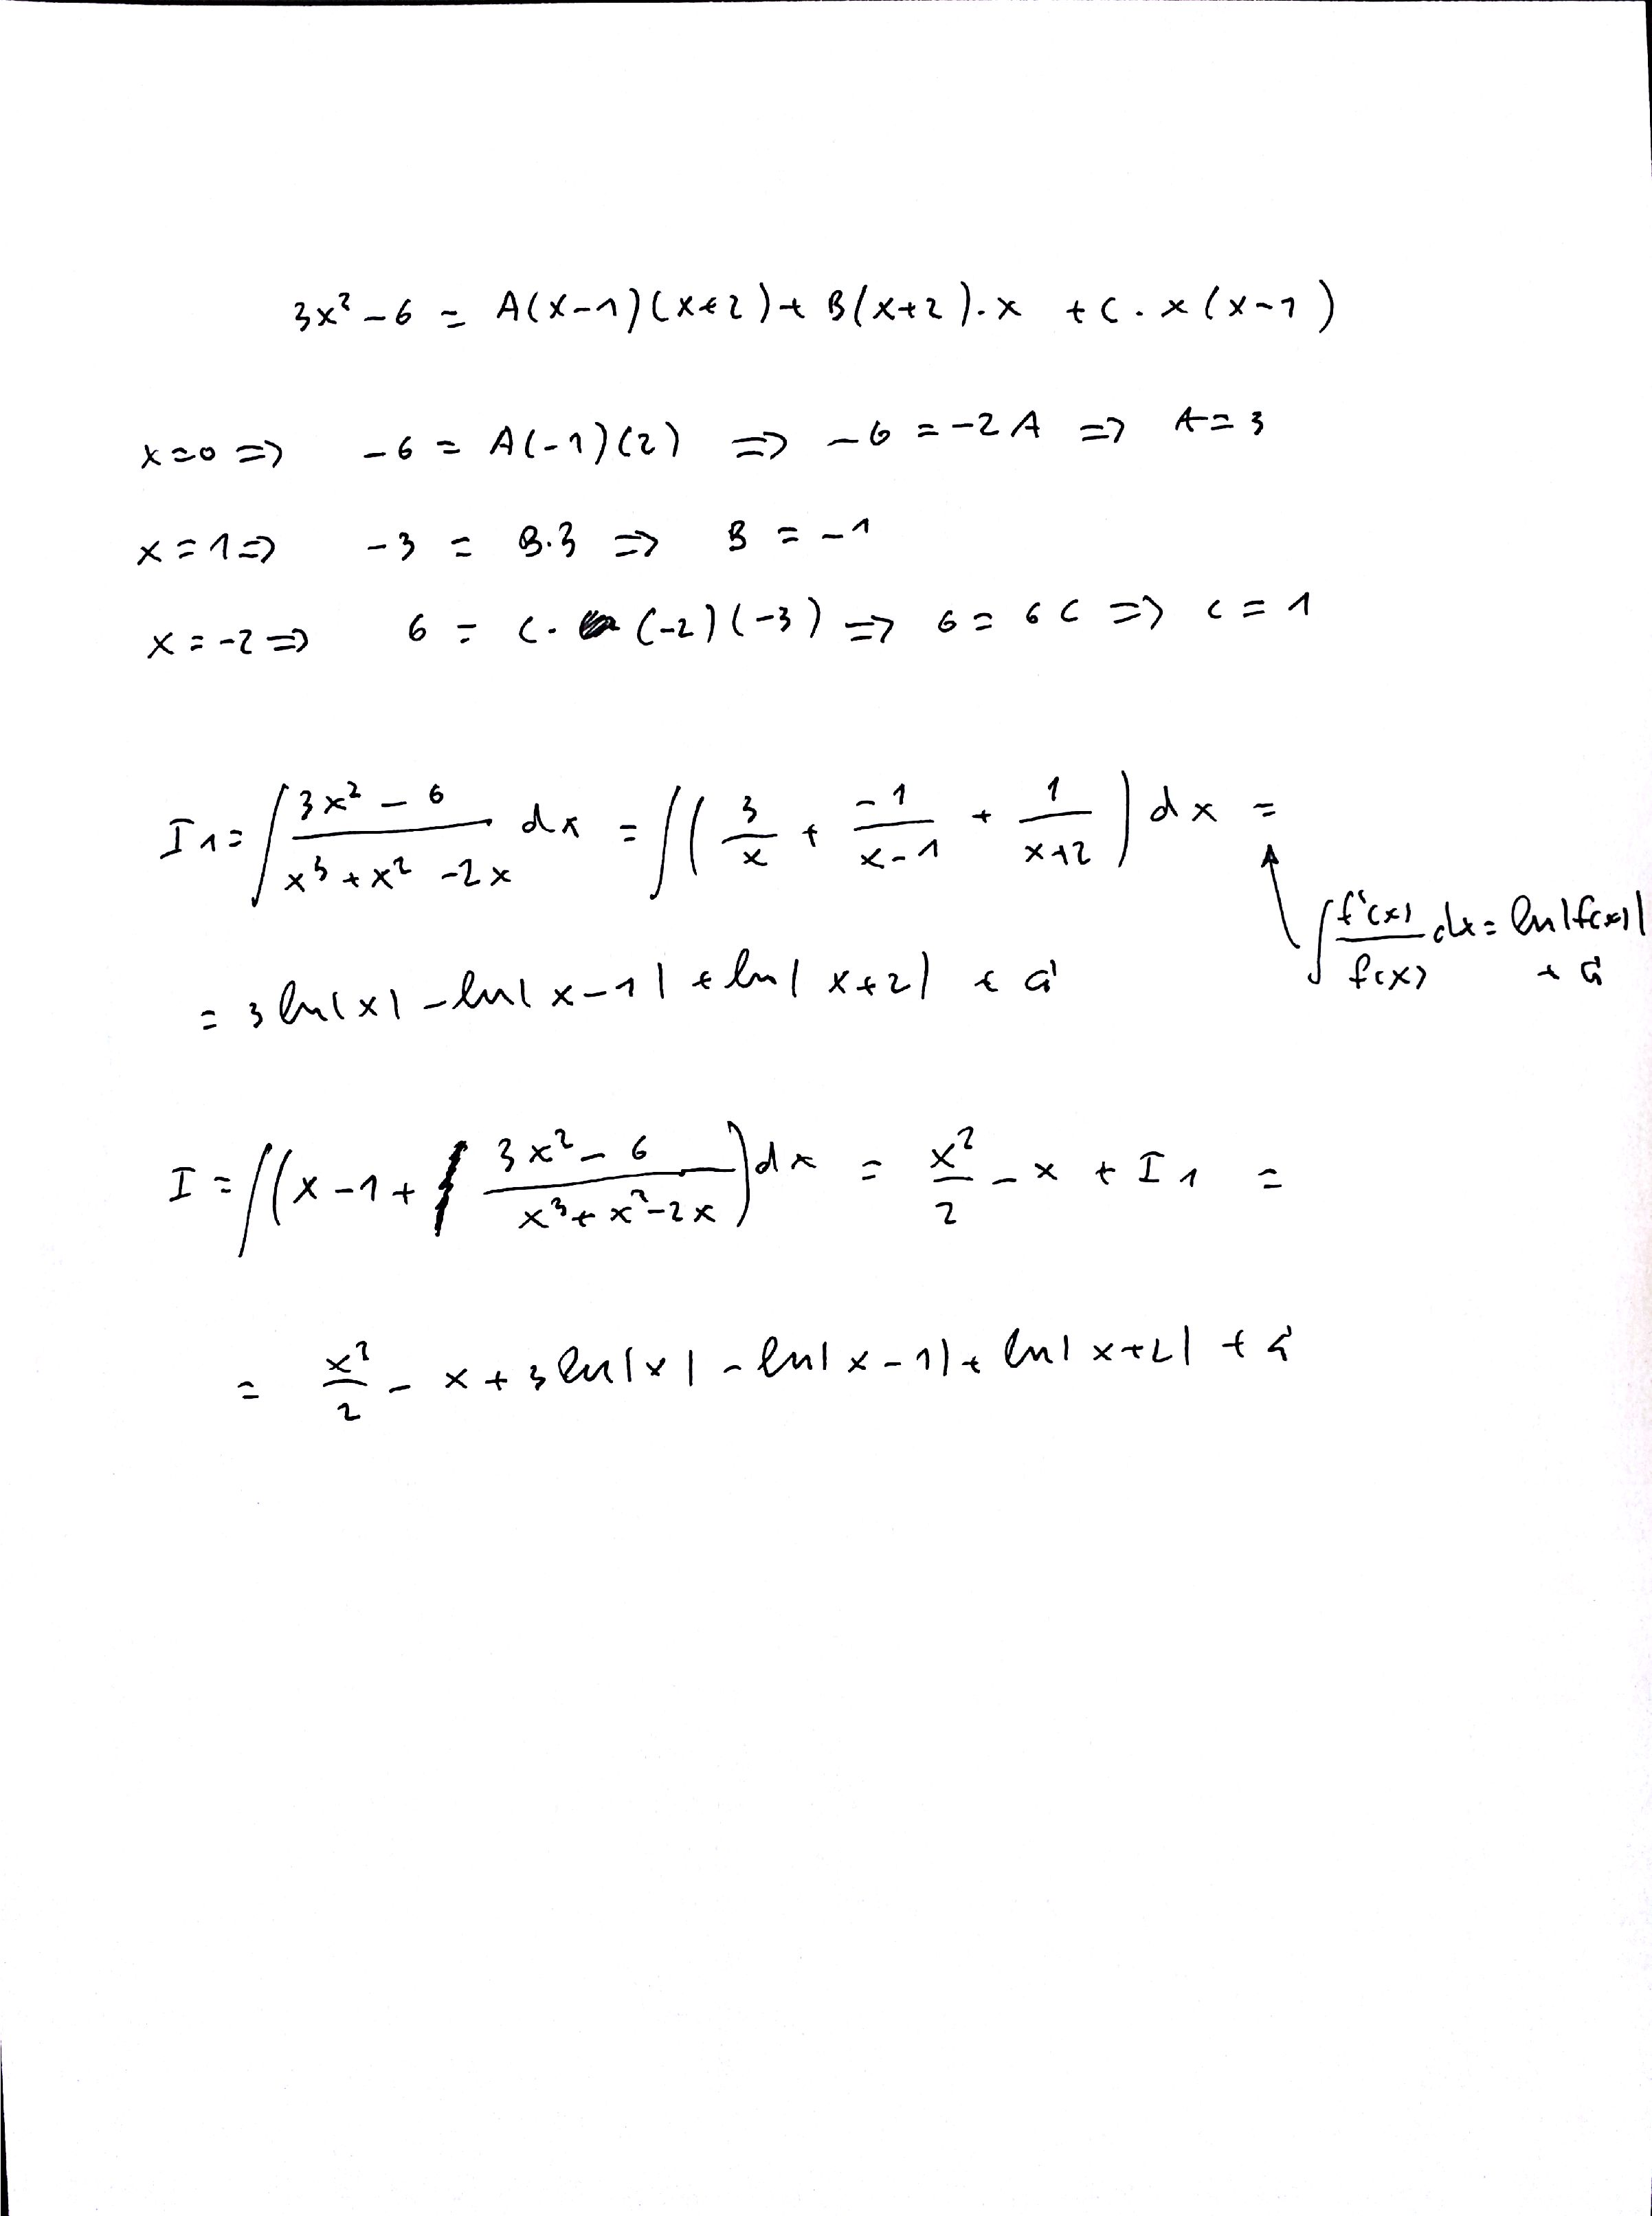 3x² - 6 = A(x-1)(x+2) + B(x+2).x + C.x(x-1)
x=0 => -6 = A(-1)(2) => -6 = -2A => A=3
x=1 => -3 = B.3 => B = -1
x=-2 => 6 = C. (-2)(-3) => 6 = 6C => C = 1
I1 = ∫ (3x² - 6)/(x³ + x² - 2x) dx = ∫ ( 3/x + -1/(x-1) + 1/(x+2) ) dx =
∫ f'(x)/f(x) dx = ln|f(x)|
+ C
= 3 ln|x| - ln|x-1| + ln|x+2| + C
I = ∫ ( x-1 + (3x² - 6)/(x³ + x² - 2x) ) dx = x²/2 - x + I1 =
= x²/2 - x + 3 ln|x| - ln|x-1| + ln|x+2| + C